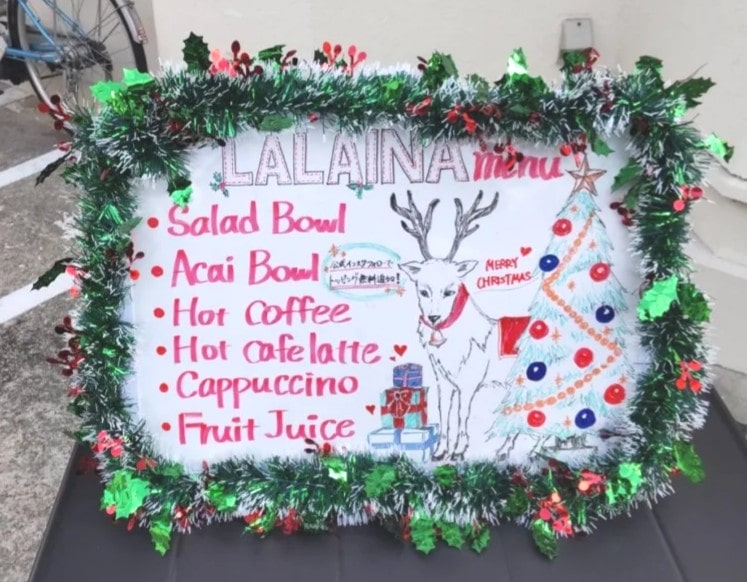 LALAINA menu
• Salad Bowl
• Acai Bowl
公式インスタフォローで
トッピング無料追加!
• Hot Coffee
• Hot Cafe latte
• Cappuccino
• Fruit Juice
MERRY
CHRISTMAS